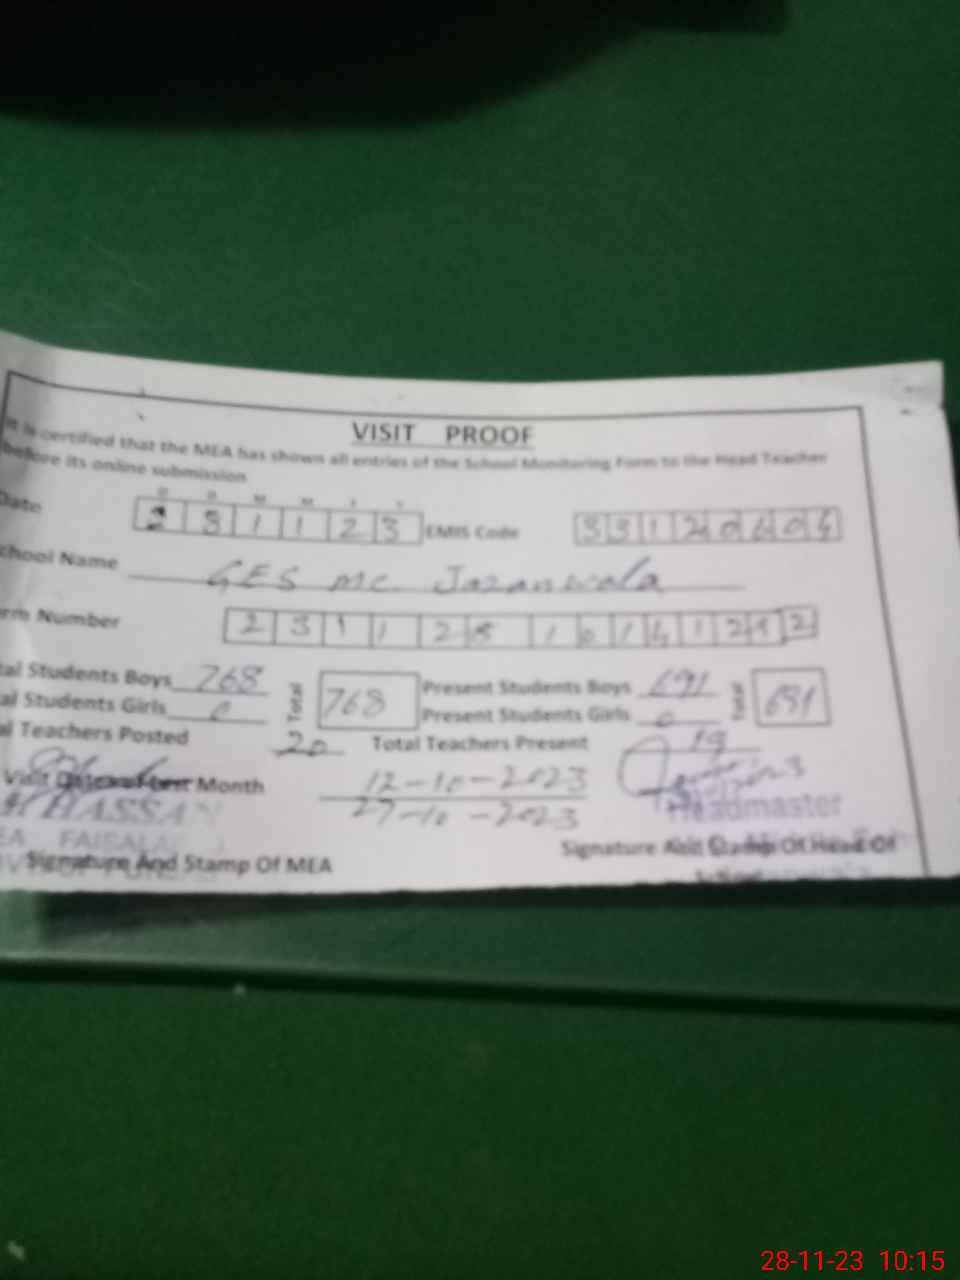 VISIT PROOF
It is certified that the MEA has shown all entries of the School Monitoring Form to the Head Teacher
before its online submission
Date D D M M Y Y 2 8 1 1 2 3 EMIS Code 3 3 1 2 0 6 0 4
chool Name GES MC Jaranwala
rm Number 2 3 1 1 2 8 1 0 1 4 1 2
tal Students Boys 768 Total 768 Present Students Boys 691 Total 691
al Students Girls 0 Present Students Girls 0
al Teachers Posted 20 Total Teachers Present 19
Visit Month 12-10-2023
27-10-2023
HASSAN
Headmaster
EA FAISALA
Signature And Stamp Of MEA
Signature And Stamp Of Head Of
28-11-23 10:15